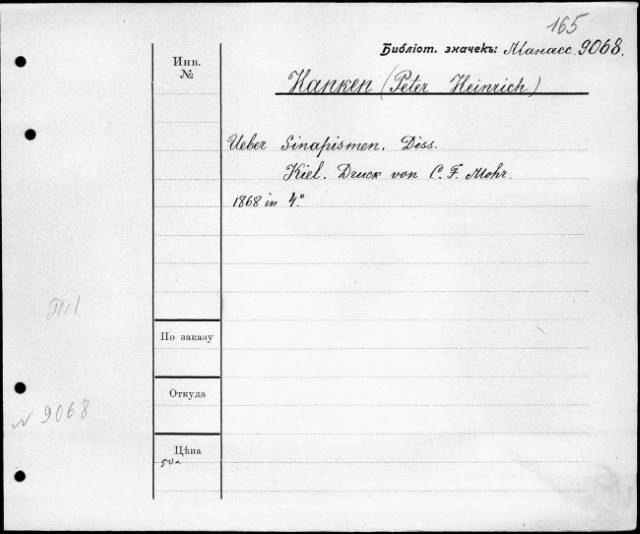 165
Библіот. значекъ: Манасс. 9068.
Инв.
№
Hanken (Peter Heinrich)
Ueber Sinapismen. Diss.
Kiel. Druck von C. F. Mohr.
1868 in 4°
По заказу
Откуда
№ 9068
Цѣна